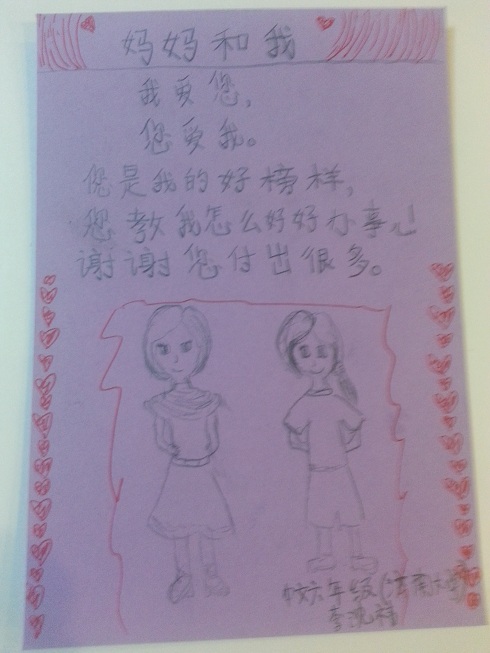 妈妈和我
我爱您,
您爱我。
您是我的好榜样,
您教我怎么好好办事心
谢谢您付出很多。
中文六年级(
李